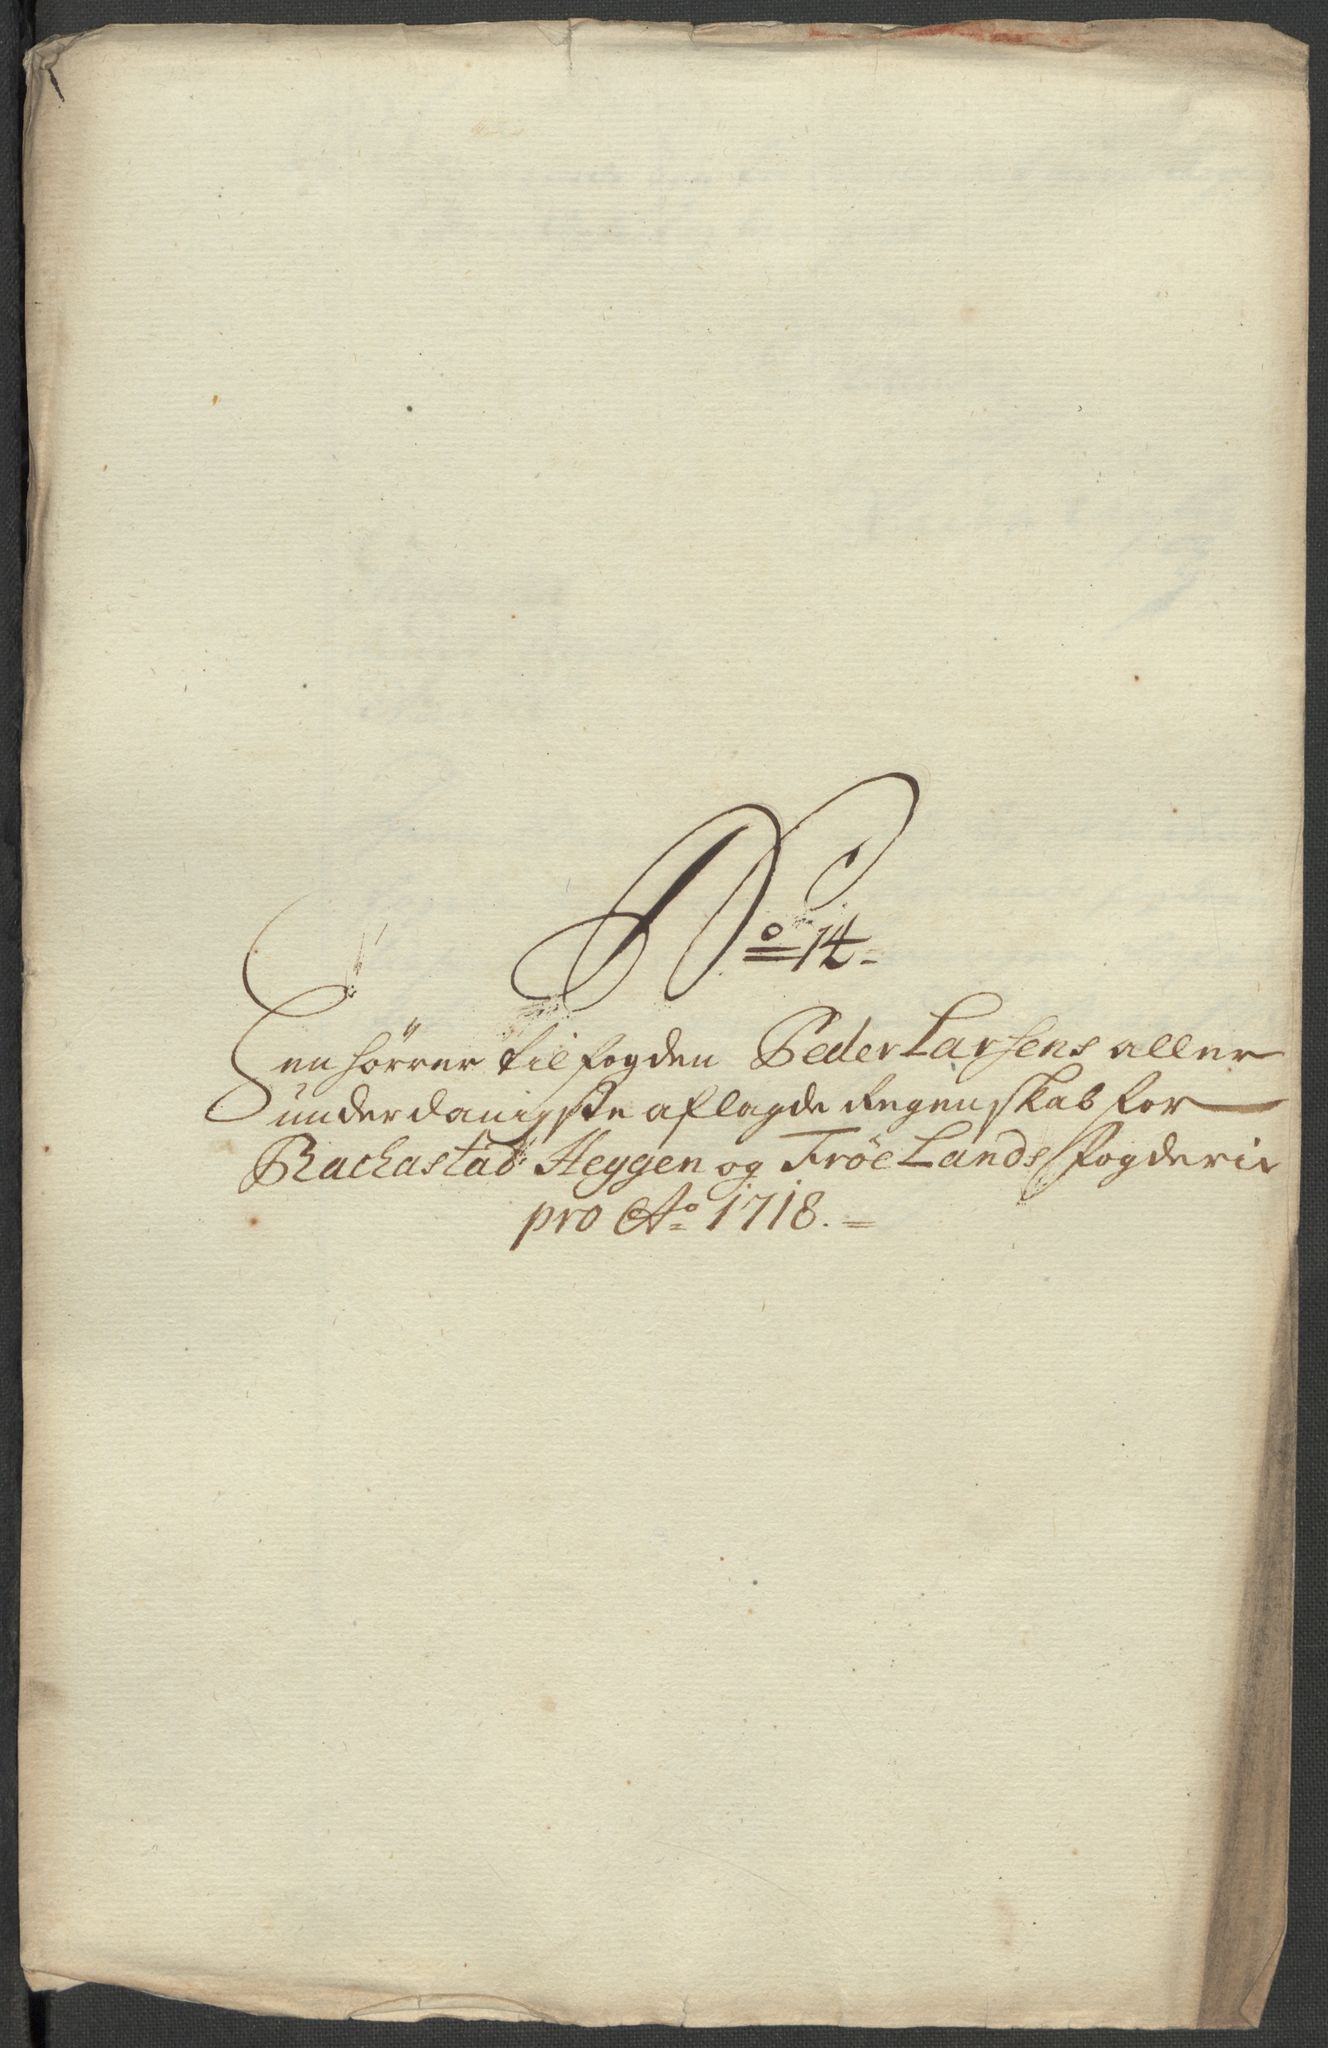 No 14.
Henhörer til fogden Peder Larsens aller
underdanigste aflagde Regenskab for
Rachastad Heggen og Fröelands fogderie
pro Ao 1718.